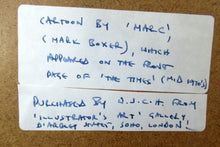 CARTOON BY 'MARC'
(MARK BOXER), WHICH
APPEARED ON THE FRONT
PAGE OF 'THE TIMES' (MID 1970'S)
PURCHASED BY D.J.C.A. FROM
'ILLUSTRATOR'S ART' GALLERY,
D'ARBLAY STREET, SOHO, LONDON.